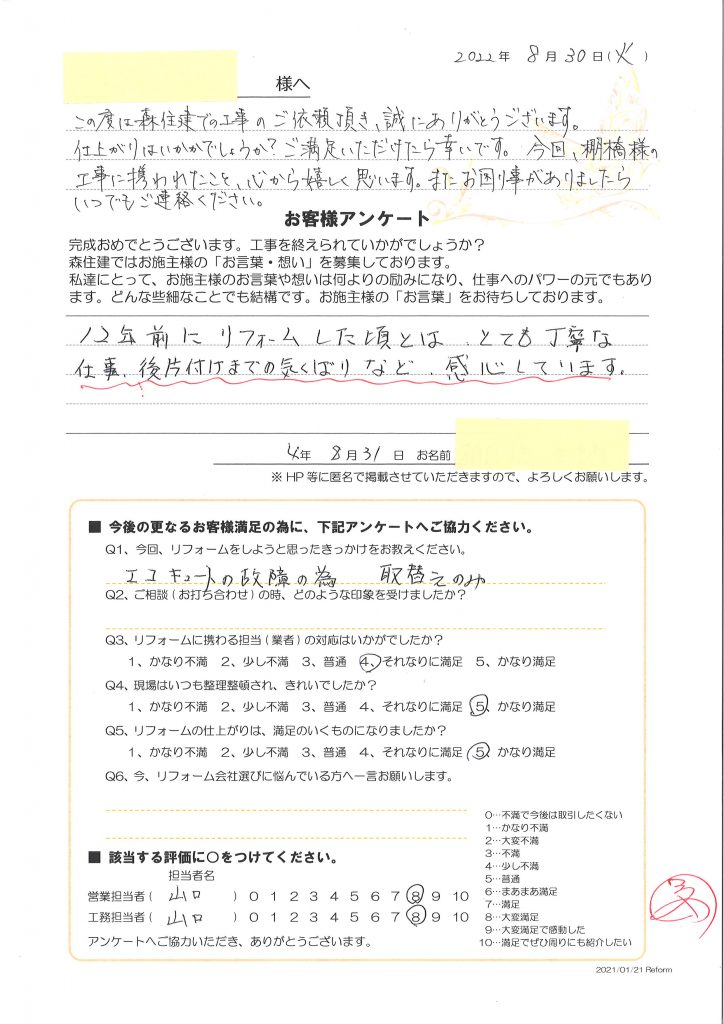 2022年 8月30日(火)
様へ
この度は森住建での工事のご依頼頂き、誠にありがとうございます。
仕上がりはいかがでしょうか?ご満足いただけたら幸いです。今回、棚橋様の
工事に携われたこと、心から嬉しく思います。またお困り事がありましたら
いつでもご連絡ください。
お客様アンケート
完成おめでとうございます。工事を終えられていかがでしょうか?
森住建ではお施主様の「お言葉・想い」を募集しております。
私達にとって、お施主様のお言葉や想いは何よりの励みになり、仕事へのパワーの元でもあり
ます。どんな些細なことでも結構です。お施主様の「お言葉」をお待ちしております。
12年前にリフォームした頃とは、とても丁寧な
仕事、後片付けまでの気くばりなど、感心しています。
4年 8月31日 お名前
※HP等に匿名で掲載させていただきますので、よろしくお願いします。
■ 今後の更なるお客様満足の為に、下記アンケートへご協力ください。
Q1、今回、リフォームをしようと思ったきっかけをお教えください。
エコキュートの故障の為 取替えのみ
Q2、ご相談(お打ち合わせ)の時、どのような印象を受けましたか?
Q3、リフォームに携わる担当(業者)の対応はいかがでしたか?
1、かなり不満 2、少し不満 3、普通 4、それなりに満足 5、かなり満足
Q4、現場はいつも整理整頓され、きれいでしたか?
1、かなり不満 2、少し不満 3、普通 4、それなりに満足 5、かなり満足
Q5、リフォームの仕上がりは、満足のいくものになりましたか?
1、かなり不満 2、少し不満 3、普通 4、それなりに満足 5、かなり満足
Q6、今、リフォーム会社選びに悩んでいる方へ一言お願いします。
■ 該当する評価に○をつけてください。
担当者名
営業担当者( 山口 ) 0 1 2 3 4 5 6 7 8 9 10
工務担当者( 山口 ) 0 1 2 3 4 5 6 7 8 9 10
アンケートへご協力いただき、ありがとうございます。
0…不満で今後は取引したくない
1…かなり不満
2…大変不満
3…不満
4…少し不満
5…普通
6…まあまあ満足
7…満足
8…大変満足
9…大変満足で感動した
10…満足でぜひ周りにも紹介したい
2021/01/21 Reform